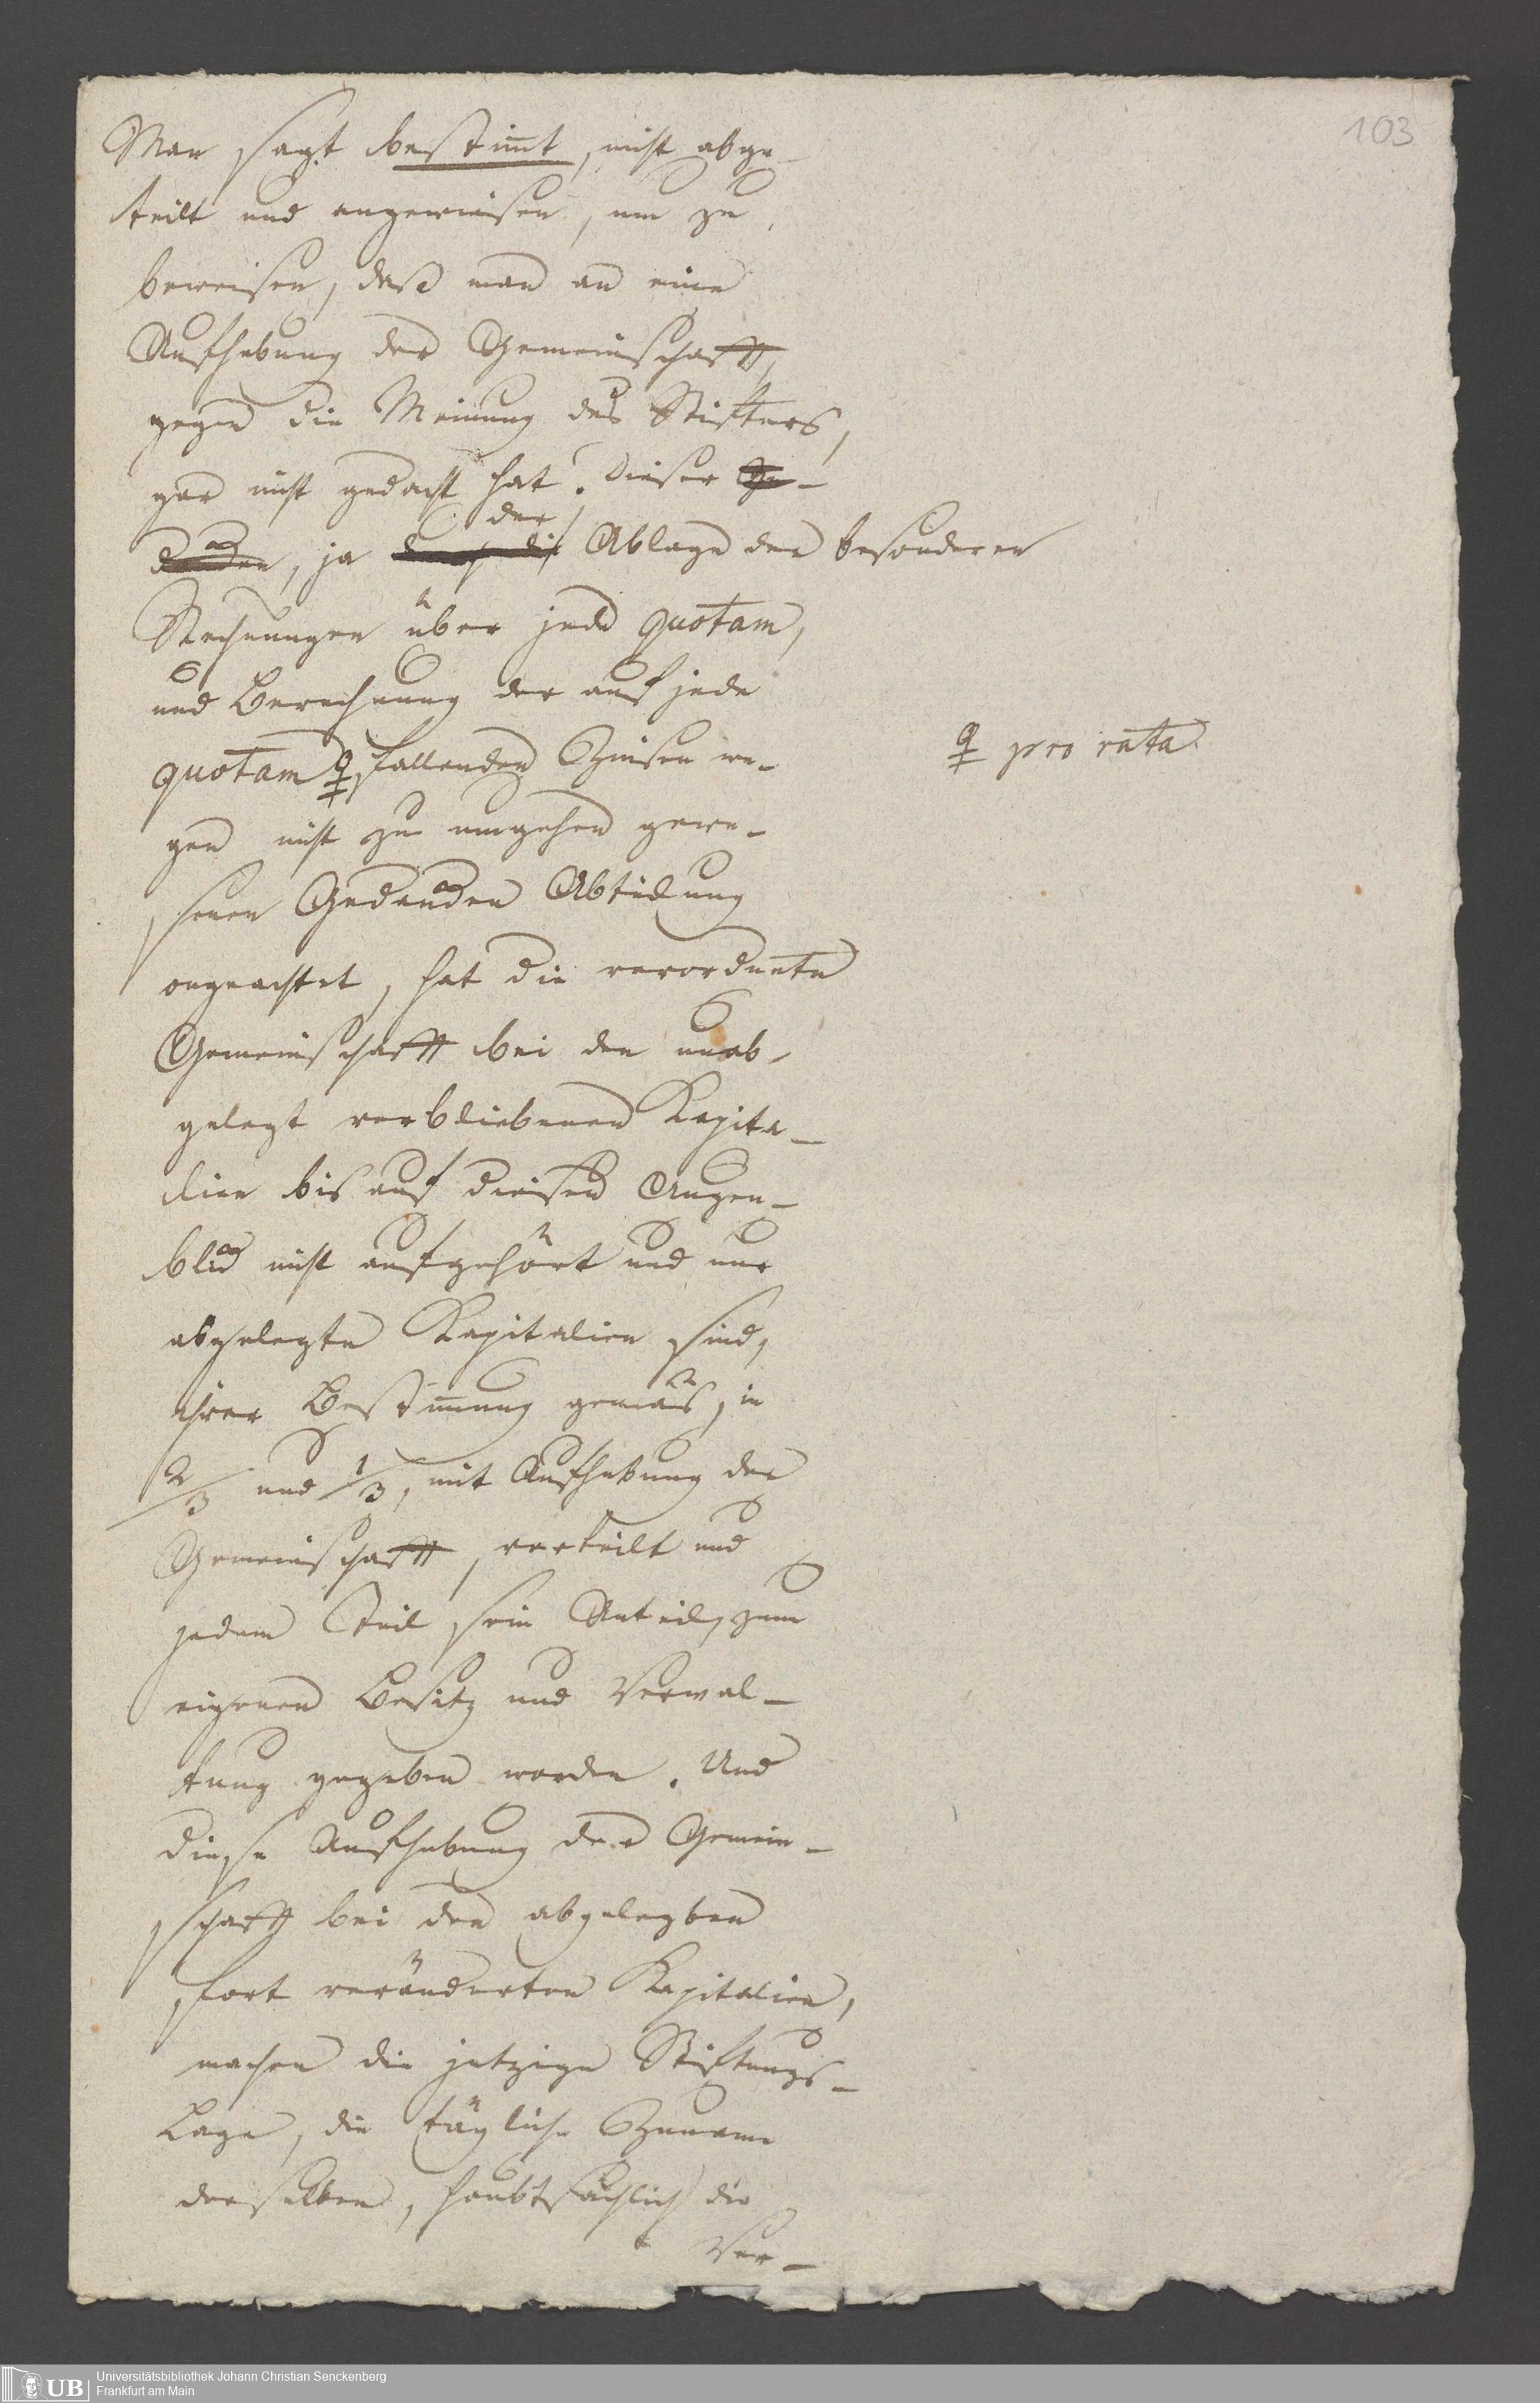 103
Man sagt bestim̄t, nicht abge-
teilt und angewiesen, um zu
beweisen, daß man an eine
Aufhebung der Gemeinschafft,
gegen die Meinung des Stifters,
gar nicht gedacht hat. Dieser Ge-
dancken, ja der Ablage der besonderen
Rechnungen über jede quotam,
und Berechnung der auf jede
quotam ♀ fallenden Zinsen we-
♀ pro rata
gen nicht zu umgehen gewe-
senen Gedancken Abteilung
ongeachtet, hat die verordnete
Gemeinschafft bei den unab-
gelegt verbliebenen Kapita-
lien bis auf diesen Augen-
blick nicht aufgehört und nur
abgelegte Kapitalien sind,
ihrer Bestim̄ung gemäs, in
2/3 und 1/3, mit Aufhebung der
Gemeinschafft, verteilt und
jedem Teil sein Anteil, zum
eigenen Besitz und Verwal-
tung gegeben worden. Und
diese Aufhebung der Gemein-
schafft bei den abgelegten
fort veränderten Kapitalien,
machen die jetzige Stiftungs-
Lage, die tägliche Zuname
derselben, haubtsächlich die
Ver-
Universitätsbibliothek Johann Christian Senckenberg
Frankfurt am Main
UB